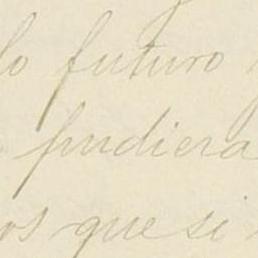 lo futuro
pudiera
os que si